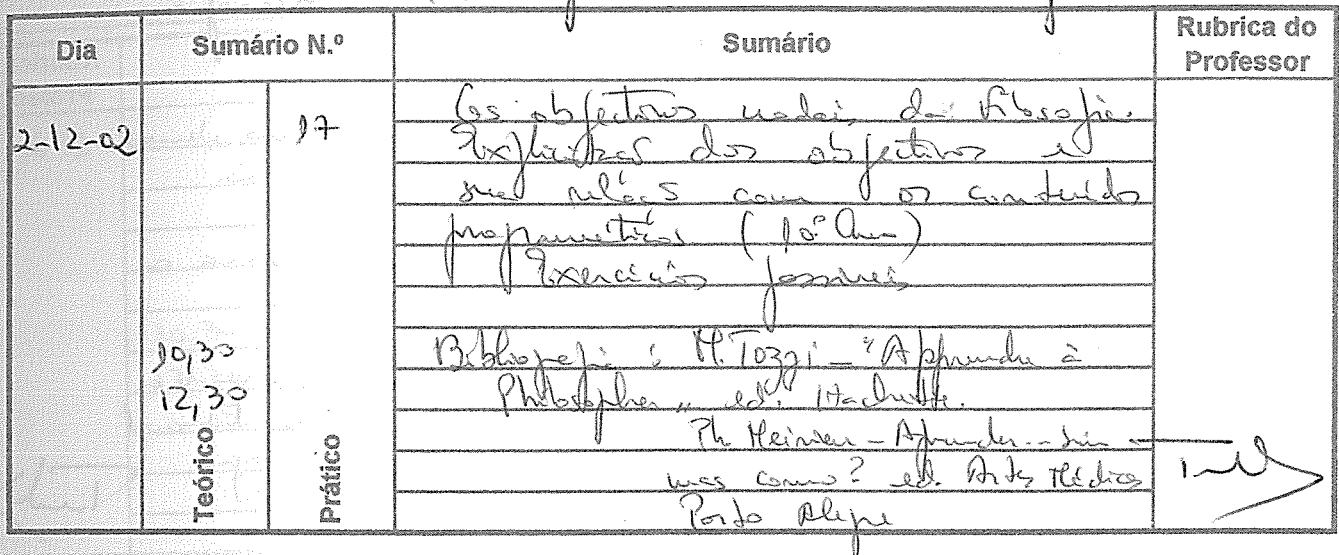 Dia Sumário N.º Sumário Rubrica do Professor
2-12-02 17 Os objectivos nodais da Filosofia.
Explicitação dos objectivos e
sua relação com os conteúdos
programáticos (10º Ano)
Exercícios possíveis
10,30 Bibliografia: M. Tozzi - "Apprendre à
12,30 Philosopher" ed. Hachette.
Ph. Meirieu - Aprender... sim
mas como? ed. Artes Médicas
Porto Alegre
Teórico Prático